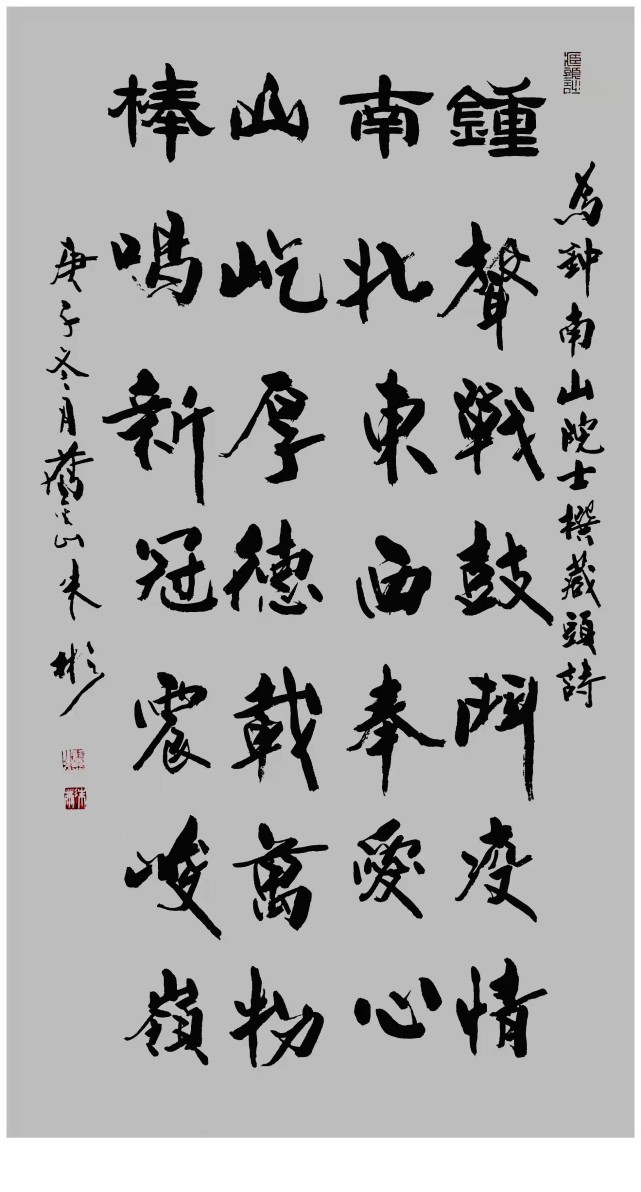 為鈡南山院士撰藏頭詩
鍾聲戰鼓鬥疫情
南北東西奉愛心
山屹厚德載萬物
棒喝新冠震峻嶺
庚子冬月舊金山朱彬